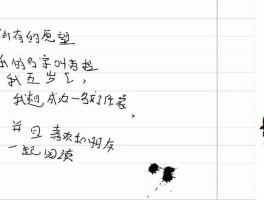 所有的愿望
我的名字叫
我五岁了,
我想成为一名好作家,
并且喜欢和朋友
一起阅读